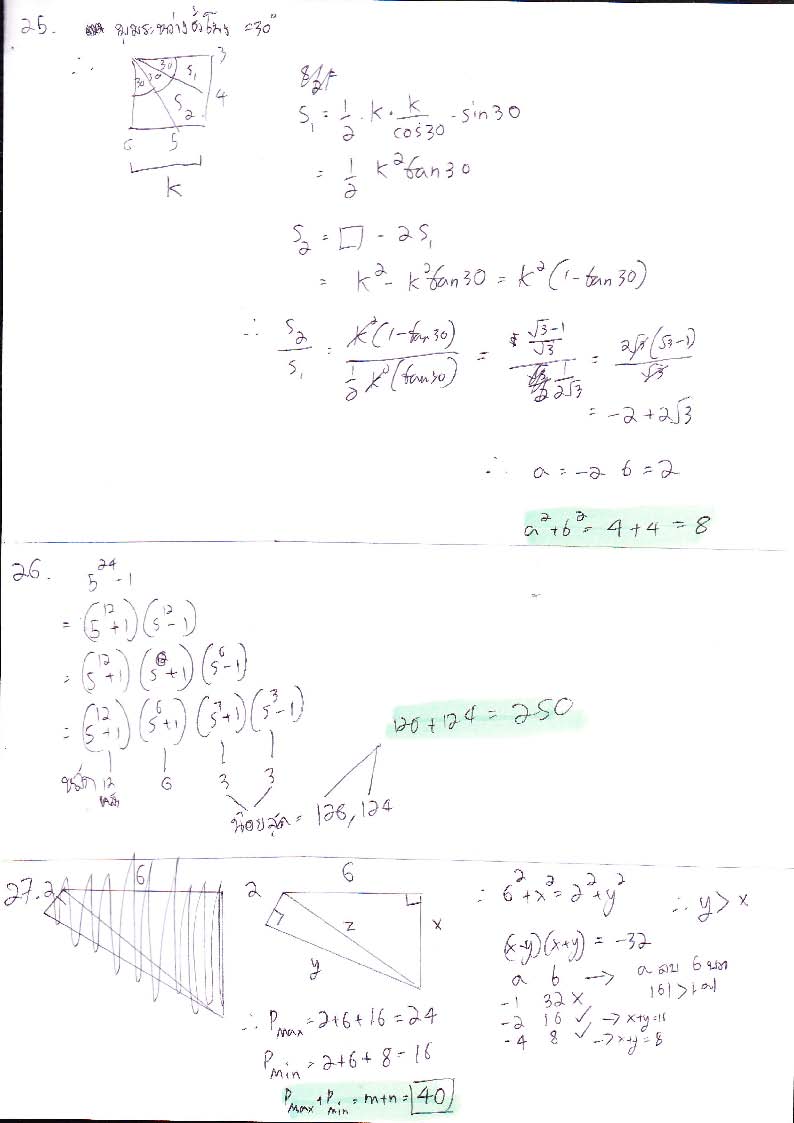 25. มุมระหว่างชั่วโมง = 30°
∴
30 30 30 S₁ S₂ 3 4 5 6
k
S₁ = 1/2 · k · k/cos30 · sin30
= 1/2 k² tan30
S₂ = □ - 2S₁
= k² - k² tan30 = k²(1 - tan30)
∴ S₂/S₁ = k²(1 - tan30) / (1/2 k²(tan30)) = ((√3-1)/√3) / (1/(2√3)) = 2√3(√3-1)/√3
= -2 + 2√3
∴ a = -2 b = 2
a² + b² = 4 + 4 = 8
26. 5²⁴ - 1
= (5¹² + 1)(5¹² - 1)
= (5¹² + 1)(5⁶ + 1)(5⁶ - 1)
= (5¹² + 1)(5⁶ + 1)(5³ + 1)(5³ - 1)
12 6 3 3
หลัก
น้อยสุด = 126, 124
126 + 124 = 250
27. 2 6
2 6 x y z
∴ 6² + x² = 2² + y² ∴ y > x
(x-y)(x+y) = -32
a b → a ลบ b บวก
|b| > |a|
-1 32 ×
-2 16 ✓ → x+y = 16
-4 8 ✓ → x+y = 8
∴ Pmax = 2+6+16 = 24
Pmin = 2+6+8 = 16
Pmax + Pmin = m+n = 40